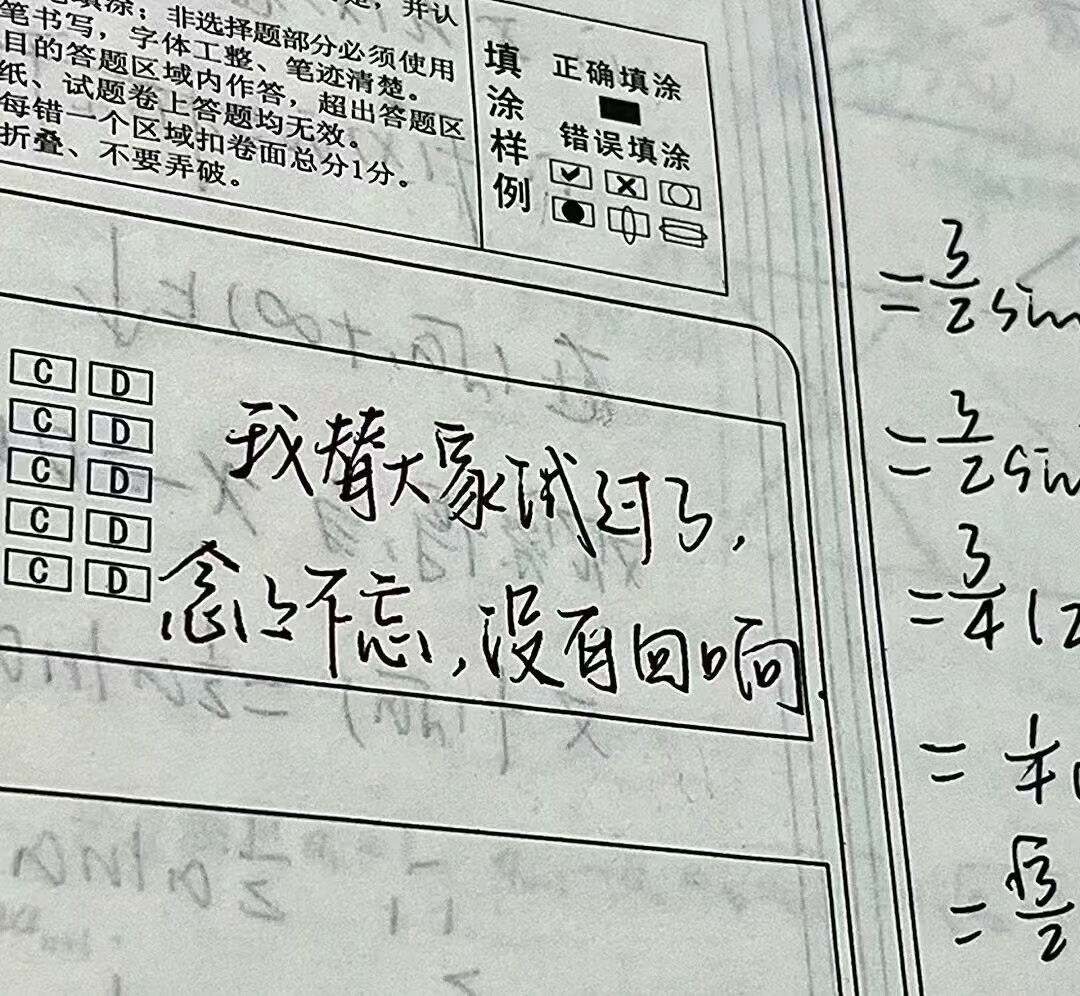 填涂；非选择题部分必须使用
笔书写，字体工整、笔迹清楚。
目的答题区域内作答，超出答题区
纸、试题卷上答题均无效。
每错一个区域扣卷面总分1分。
折叠、不要弄破。
填涂样例
正确填涂
错误填涂
C D
C D
C D
C D
C D
我替大家试过了，
念念不忘，没有回响.
=3/2 sin
=3/2 sin
=3/4 (
=1/4
=√3/2